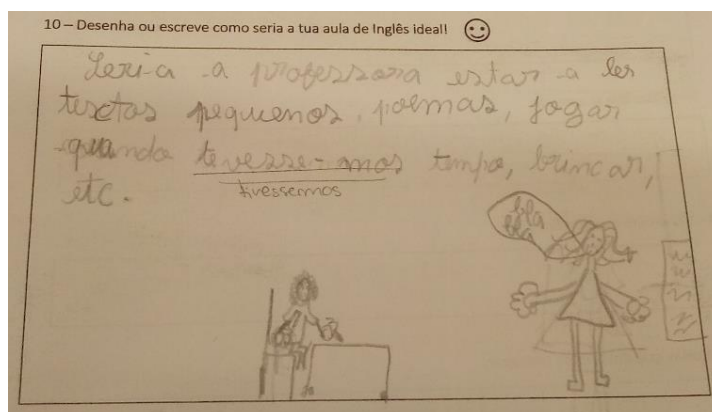 10 – Desenha ou escreve como seria a tua aula de Inglês ideal!
Seri-a a professora estar a ler
tesctos pequenos, poemas, jogar
quando tevesse-mos tempo, brincar,
etc.
tivessemos
bla
bla